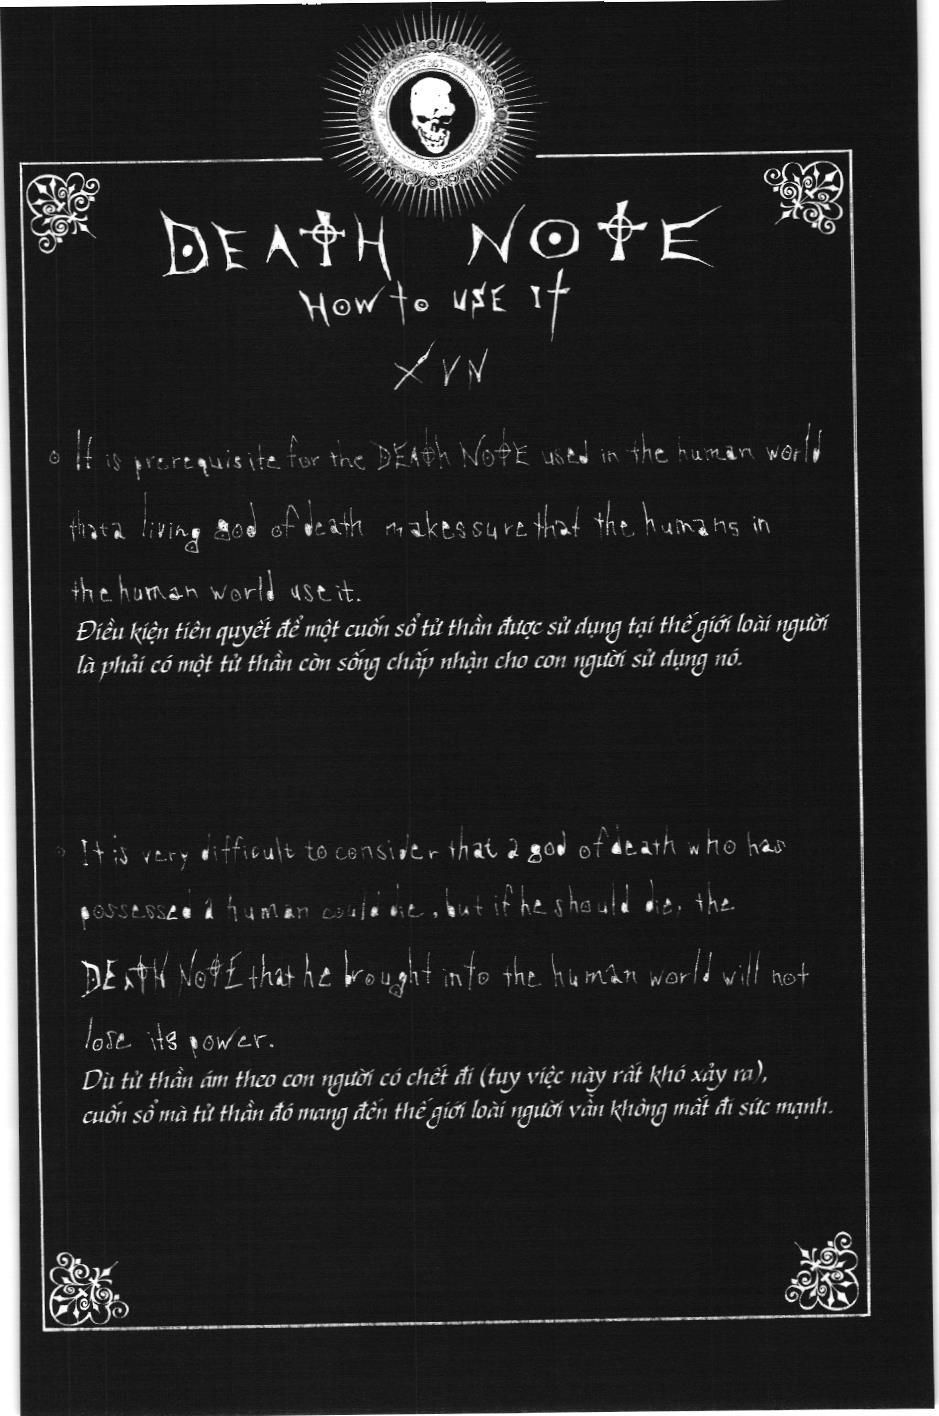 DEATH NOTE
HOW to USE It
XVN
It is prerequisite for the DEATH NOTE used in the human world
that a living god of death makes sure that the humans in
the human world use it.
Điều kiện tiên quyết để một cuốn sổ tử thần được sử dụng tại thế giới loài người
là phải có một tử thần còn sống chấp nhận cho con người sử dụng nó.
It is very difficult to consider that a god of death who has
possessed a human could die, but if he should die, the
DEATH NOTE that he brought into the human world will not
lose its power.
Dù tử thần ám theo con người có chết đi (tuy việc này rất khó xảy ra),
cuốn sổ mà tử thần đó mang đến thế giới loài người vẫn không mất đi sức mạnh.